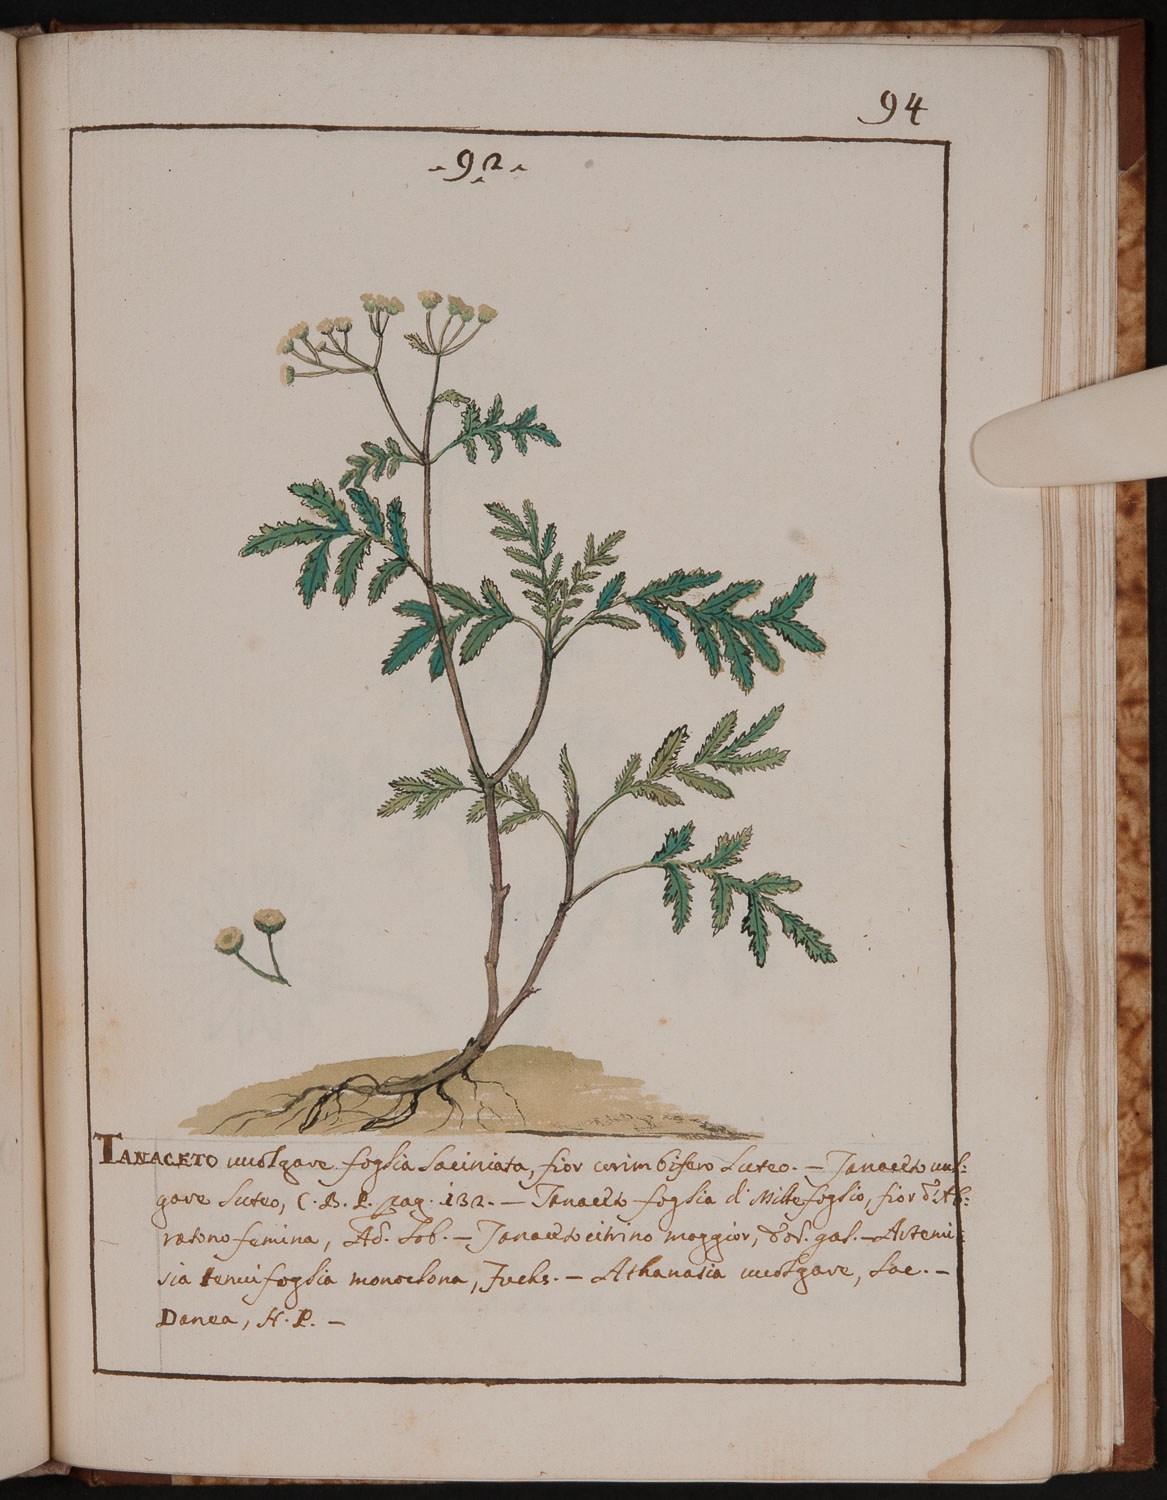 94
-92-
TANACETO vuolgare foglia laciniata, fior corimbifero luteo. — Tanaceto vul:
gare luteo, C. B. P. pag. 132. — Tanaceto foglia di Millefoglio, fior d'Ab:
rotono femina, Ad. Lob. — Tanaceto citrino maggior, Dod. gal. — Artemi:
sia tenuifoglia monoclona, Fuchs. — Athanasia vuolgare, Lac. —
Danea, H. P. —